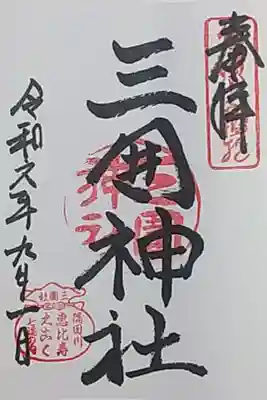 奉拝
三囲神社
令和元年九月一日
三囲
神社
三囲社
隅田川
恵比寿
大こく